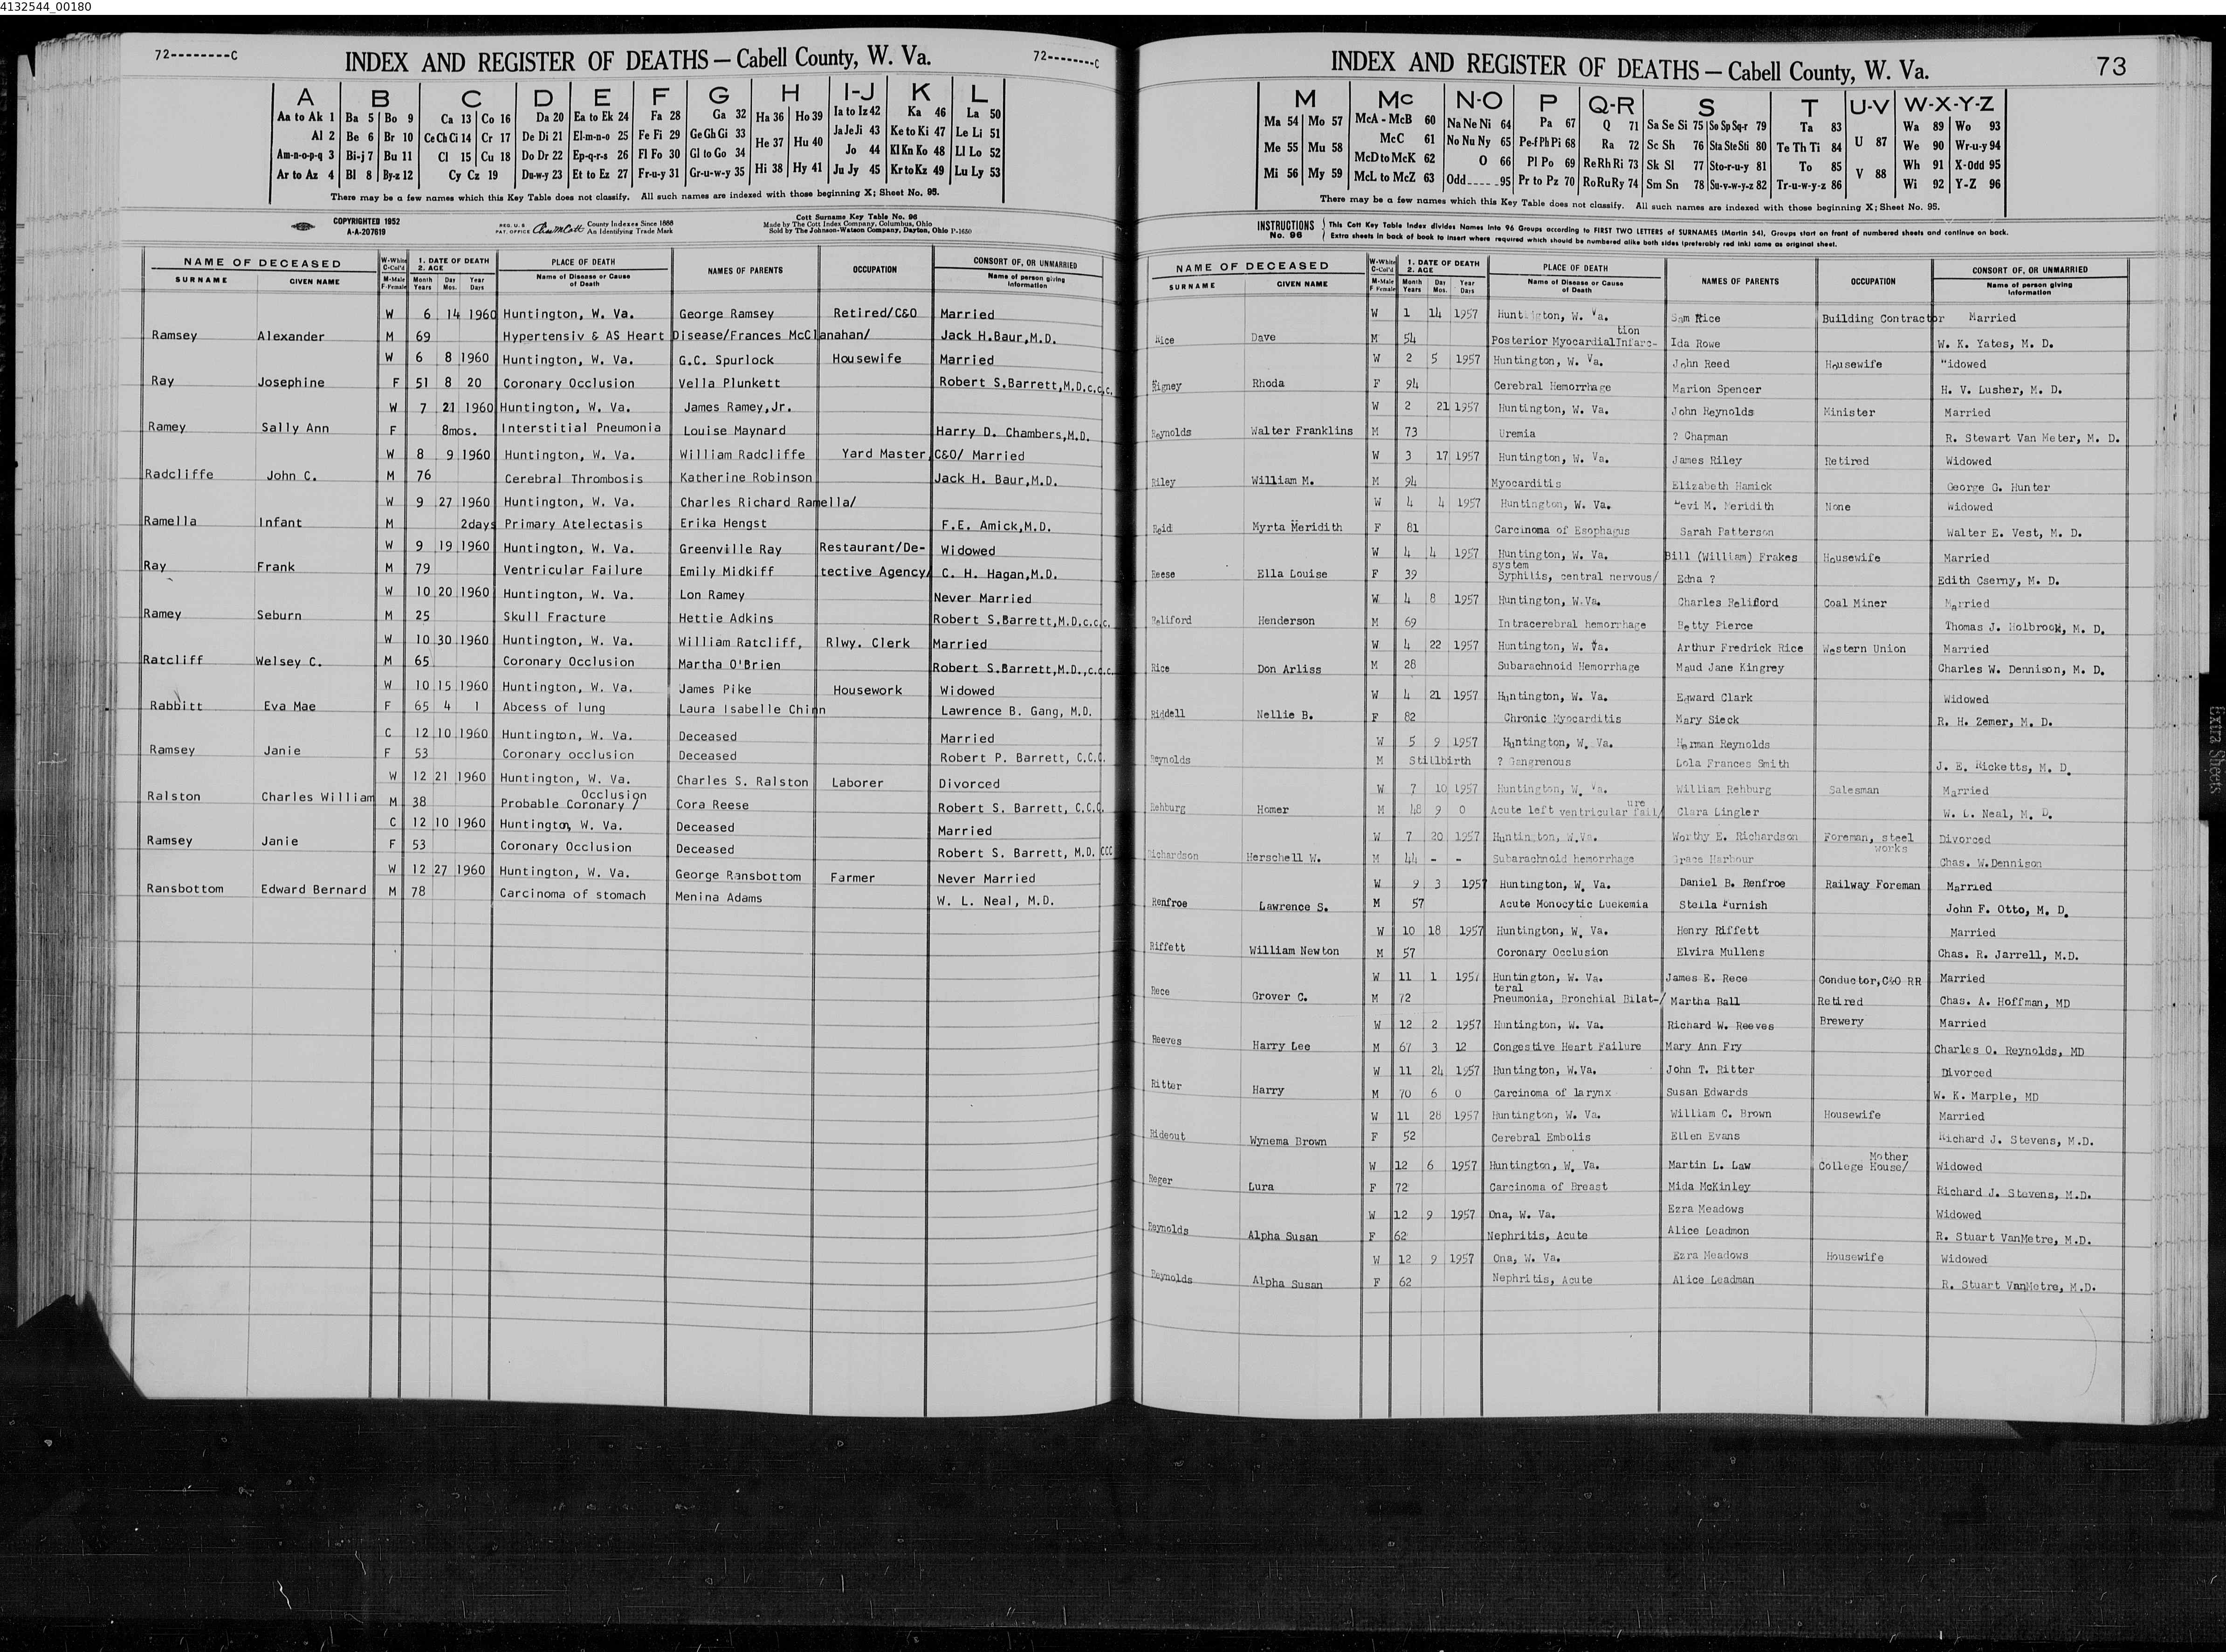 4132544_00180
72--------C
INDEX AND REGISTER OF DEATHS — Cabell County, W. Va.
72--------C
A B C D E F G H I-J K L
Aa to Ak 1 Ba 5 Bo 9 Ca 13 Co 16 Da 20 Ea to Ek 24 Fa 28 Ga 32 Ha 36 Ho 39 Ia to Iz 42 Ka 46 La 50
Al 2 Be 6 Br 10 Ce Ch Ci 14 Cr 17 De Di 21 El-m-n-o 25 Fe Fi 29 Ge Gh Gi 33 He 37 Hu 40 Ja Je Ji 43 Ke to Ki 47 Le Li 51
Am-n-o-p-q 3 Bi-j 7 Bu 11 Cl 15 Cu 18 Do Dr 22 Ep-q-r-s 26 Fl Fo 30 Gl to Go 34 Jo 44 Kl Kn Ko 48 Ll Lo 52
Ar to Az 4 Bl 8 By-z 12 Cy Cz 19 Du-w-y 23 Et to Ez 27 Fr-u-y 31 Gr-u-w-y 35 Hi 38 Hy 41 Ju Jy 45 Kr to Kz 49 Lu Ly 53
There may be a few names which this Key Table does not classify. All such names are indexed with those beginning X; Sheet No. 95.
COPYRIGHTED 1952
A-A-207619
REG. U. S. PAT. OFFICE
County Indexes Since 1888
An Identifying Trade Mark
Cott Surname Key Table No. 96
Made by The Cott Index Company, Columbus, Ohio
Sold by The Johnson-Watson Company, Dayton, Ohio P-1650
NAME OF DECEASED W-White C-Col'd 1. DATE OF DEATH 2. AGE PLACE OF DEATH NAMES OF PARENTS OCCUPATION CONSORT OF, OR UNMARRIED
SURNAME GIVEN NAME M-Male F-Female Month Years Day Mos. Year Days Name of Disease or Cause of Death Name of person giving Information
W 6 14 1960 Huntington, W. Va. George Ramsey Retired/C&O Married
Ramsey Alexander M 69 Hypertensiv & AS Heart Disease/Frances McClanahan/ Jack H.Baur,M.D.
W 6 8 1960 Huntington, W. Va. G.C. Spurlock Housewife Married
Ray Josephine F 51 8 20 Coronary Occlusion Vella Plunkett Robert S.Barrett,M.D.c.c.c.
W 7 21 1960 Huntington, W. Va. James Ramey,Jr.
Ramey Sally Ann F 8mos. Interstitial Pneumonia Louise Maynard Harry D. Chambers,M.D.
W 8 9 1960 Huntington, W. Va. William Radcliffe Yard Master, C&O/ Married
Radcliffe John C. M 76 Cerebral Thrombosis Katherine Robinson Jack H. Baur,M.D.
W 9 27 1960 Huntington, W. Va. Charles Richard Ramella/
Ramella Infant M 2days Primary Atelectasis Erika Hengst F.E. Amick,M.D.
W 9 19 1960 Huntington, W. Va. Greenville Ray Restaurant/De- Widowed
Ray Frank M 79 Ventricular Failure Emily Midkiff tective Agency/ C. H. Hagan,M.D.
W 10 20 1960 Huntington, W. Va. Lon Ramey Never Married
Ramey Seburn M 25 Skull Fracture Hettie Adkins Robert S.Barrett,M.D.c.c.c.
W 10 30 1960 Huntington, W. Va. William Ratcliff, Rlwy. Clerk Married
Ratcliff Welsey C. M 65 Coronary Occlusion Martha O'Brien Robert S.Barrett,M.D.,c.c.c.
W 10 15 1960 Huntington, W. Va. James Pike Housework Widowed
Rabbitt Eva Mae F 65 4 1 Abcess of lung Laura Isabelle Chinn Lawrence B. Gang, M.D.
C 12 10 1960 Huntington, W. Va. Deceased Married
Ramsey Janie F 53 Coronary occlusion Deceased Robert P. Barrett, C.C.C.
W 12 21 1960 Huntington, W. Va. Charles S. Ralston Laborer Divorced
Occlusion
Ralston Charles William M 38 Probable Coronary / Cora Reese Robert S. Barrett, C.C.C.
C 12 10 1960 Huntington, W. Va. Deceased Married
Ramsey Janie F 53 Coronary Occlusion Deceased Robert S. Barrett, M.D. CCC
W 12 27 1960 Huntington, W. Va. George Ransbottom Farmer Never Married
Ransbottom Edward Bernard M 78 Carcinoma of stomach Menina Adams W. L. Neal, M.D.
INDEX AND REGISTER OF DEATHS — Cabell County, W. Va.
73
M Mc N-O P Q-R S T U-V W-X-Y-Z
Ma 54 Mo 57 McA - McB 60 Na Ne Ni 64 Pa 67 Q 71 Sa Se Si 75 So Sp Sq-r 79 Ta 83 U 87 Wa 89 Wo 93
Me 55 Mu 58 McC 61 No Nu Ny 65 Pe-f Ph Pi 68 Ra 72 Sc Sh 76 Sta Ste Sti 80 Te Th Ti 84 We 90 Wr-u-y 94
McD to McK 62 O 66 Pl Po 69 Re Rh Ri 73 Sk Sl 77 Sto-r-u-y 81 To 85 V 88 Wh 91 X-Odd 95
Mi 56 My 59 McL to McZ 63 Odd ---- 95 Pr to Pz 70 Ro Ru Ry 74 Sm Sn 78 Su-v-w-y-z 82 Tr-u-w-y-z 86 Wi 92 Y-Z 96
There may be a few names which this Key Table does not classify. All such names are indexed with those beginning X; Sheet No. 95.
INSTRUCTIONS No. 96
This Cott Key Table Index divides Names into 96 Groups according to FIRST TWO LETTERS of SURNAMES (Martin 54), Groups start on front of numbered sheets and continue on back.
Extra sheets in back of book to insert where required which should be numbered alike both sides (preferably red ink) same as original sheet.
NAME OF DECEASED W-White C-Col'd 1. DATE OF DEATH 2. AGE PLACE OF DEATH NAMES OF PARENTS OCCUPATION CONSORT OF, OR UNMARRIED
SURNAME GIVEN NAME M-Male F Female Month Years Day Mos. Year Days Name of Disease or Cause of Death Name of person giving Information
W 1 14 1957 Huntington, W. Va. Sam Rice Building Contractor Married
tion
Rice Dave M 54 Posterior MyocardialInfarc- Ida Rowe W. K. Yates, M. D.
W 2 5 1957 Huntington, W. Va. John Reed Housewife "idowed
Rigney Rhoda F 94 Cerebral Hemorrhage Marion Spencer H. V. Lusher, M. D.
W 2 21 1957 Huntington, W. Va. John Reynolds Minister Married
Reynolds Walter Franklins M 73 Uremia ? Chapman R. Stewart Van Meter, M. D.
W 3 17 1957 Huntington, W. Va. James Riley Retired Widowed
Riley William M. M 94 Myocarditis Elizabeth Hamick George G. Hunter
W 4 4 1957 Huntington, W. Va. Levi M. Meridith None Widowed
Reid Myrta Meridith F 81 Carcinoma of Esophagus Sarah Patterson Walter E. Vest, M. D.
W 4 4 1957 Huntington, W. Va. Bill (William) Frakes Housewife Married
system
Reese Ella Louise F 39 Syphilis, central nervous/ Edna ? Edith Cserny, M. D.
W 4 8 1957 Huntington, W.Va. Charles Reliford Coal Miner Married
Reliford Henderson M 69 Intracerebral hemorrhage Betty Pierce Thomas J. Holbrook, M. D.
W 4 22 1957 Huntington, W. Va. Arthur Fredrick Rice Western Union Married
Rice Don Arliss M 28 Subarachnoid Hemorrhage Maud Jane Kingrey Charles W. Dennison, M. D.
W 4 21 1957 Huntington, W. Va. Edward Clark Widowed
Riddell Nellie B. F 82 Chronic Myocarditis Mary Sieck R. H. Zemer, M. D.
W 5 9 1957 Huntington, W. Va. Herman Reynolds
Reynolds M Stillbirth ? Gangrenous Lola Frances Smith J. E. Ricketts, M. D.
W 7 10 1957 Huntington, W. Va. William Rehburg Salesman Married
ure
Rehburg Homer M 48 9 0 Acute left ventricular fail/ Clara Lingler W. L. Neal, M. D.
W 7 20 1957 Huntington, W.Va. Worthy E. Richardson Foreman, steel works Divorced
Richardson Herschell W. M 44 - - Subarachnoid hemorrhage Grace Harbour Chas. W.Dennison
W 9 3 1957 Huntington, W. Va. Daniel B. Renfroe Railway Foreman Married
Renfroe Lawrence S. M 57 Acute Monocytic Luekemia Stella Furnish John F. Otto, M. D.
W 10 18 1957 Huntington, W. Va. Henry Riffett Married
Riffett William Newton M 57 Coronary Occlusion Elvira Mullens Chas. R. Jarrell, M.D.
W 11 1 1957 Huntington, W. Va. James E. Rece Conductor,C&O RR Married
teral
Rece Grover C. M 72 Pneumonia, Bronchial Bilat-/ Martha Ball Retired Chas. A. Hoffman, MD
W 12 2 1957 Huntington, W. Va. Richard W. Reeves Brewery Married
Reeves Harry Lee M 67 3 12 Congestive Heart Failure Mary Ann Fry Charles O. Reynolds, MD
W 11 24 1957 Huntington, W.Va. John T. Ritter Divorced
Ritter Harry M 70 6 0 Carcinoma of larynx Susan Edwards W. K. Marple, MD
W 11 28 1957 Huntington, W. Va. William C. Brown Housewife Married
Rideout Wynema Brown F 52 Cerebral Embolis Ellen Evans Richard J. Stevens, M.D.
Mother
W 12 6 1957 Huntington, W. Va. Martin L. Law College House/ Widowed
Reger Lura F 72 Carcinoma of Breast Mida McKinley Richard J. Stevens, M.D.
W 12 9 1957 Ona, W. Va. Ezra Meadows Widowed
Reynolds Alpha Susan F 62 Nephritis, Acute Alice Leadmon R. Stuart VanMetre, M.D.
W 12 9 1957 Ona, W. Va. Ezra Meadows Housewife Widowed
Reynolds Alpha Susan F 62 Nephritis, Acute Alice Leadman R. Stuart VanMetre, M.D.
Extra Sheets